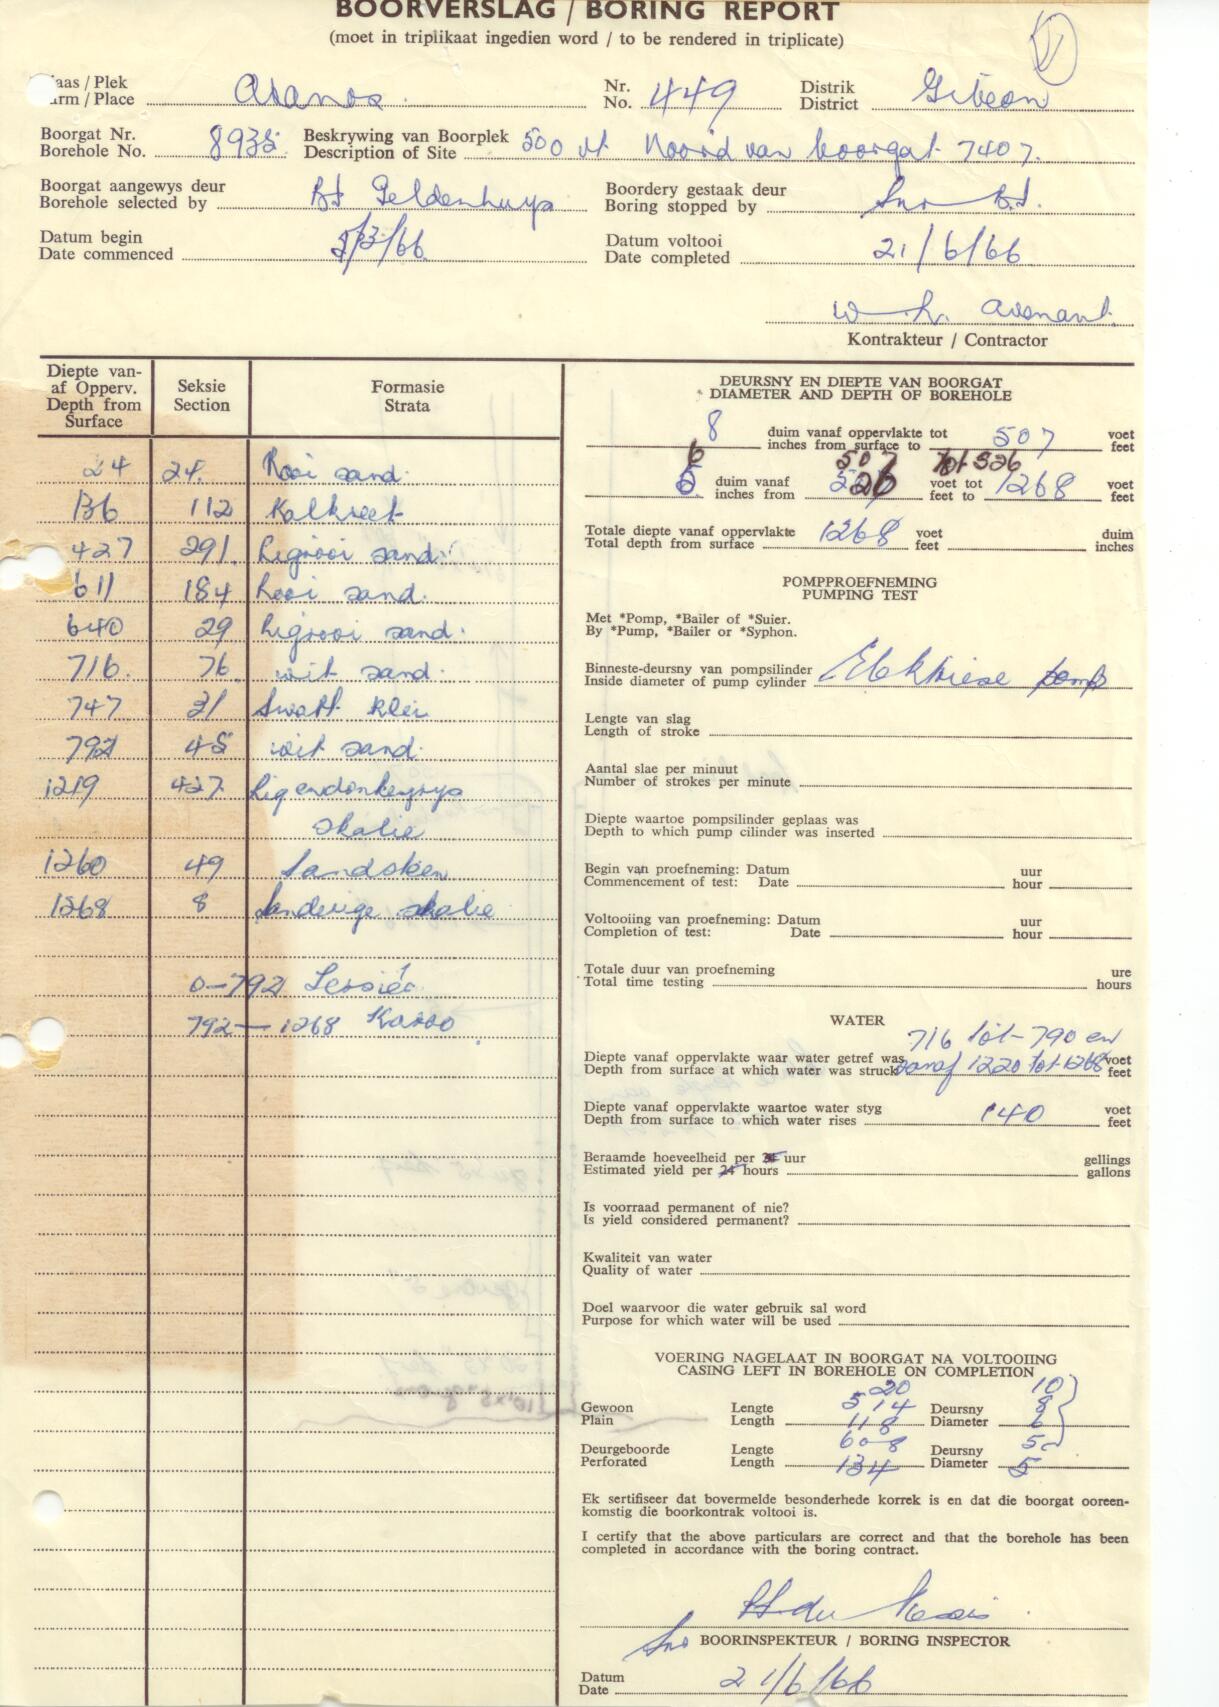 BOORVERSLAG / BORING REPORT
(moet in triplikaat ingedien word / to be rendered in triplicate)
aas / Plek
arm / Place Aranos Nr. No. 449 Distrik District Gibeon
Boorgat Nr. Beskrywing van Boorplek
Borehole No. 8935 Description of Site 500 vt Noord van boorgat 7407.
Boorgat aangewys deur Boordery gestaak deur
Borehole selected by BI Geldenhuys Boring stopped by Snr B.I.
Datum begin Datum voltooi
Date commenced /3/66 Date completed 21/6/66
Avenant.
Kontrakteur / Contractor
Diepte van-
af Opperv.
Depth from
Surface
Seksie
Section
Formasie
Strata
24 24. Rooi sand.
136 112 Kalkreet
427 291. Ligrooi sand.
611 184 Rooi sand.
640 29 Ligrooi sand.
716. 76. wit sand.
747 31 Swart klei
792 45 wit sand.
1219 427. Lig en donkergrys
skalie
1260 49 Sandsteen
1268 8 Sanderige skalie
0–792
792 — 1268 Karoo
DEURSNY EN DIEPTE VAN BOORGAT
DIAMETER AND DEPTH OF BOREHOLE
8 duim vanaf oppervlakte tot 507 voet
inches from surface to feet
6 507 tot 526
5 duim vanaf 526 voet tot 1268 voet
inches from feet to feet
Totale diepte vanaf oppervlakte 1268 voet duim
Total depth from surface feet inches
POMPPROEFNEMING
PUMPING TEST
Met *Pomp, *Bailer of *Suier.
By *Pump, *Bailer or *Syphon.
Binneste-deursny van pompsilinder
Inside diameter of pump cylinder Elektriese pomp
Lengte van slag
Length of stroke
Aantal slae per minuut
Number of strokes per minute
Diepte waartoe pompsilinder geplaas was
Depth to which pump cilinder was inserted
Begin van proefneming: Datum uur
Commencement of test: Date hour
Voltooiing van proefneming: Datum uur
Completion of test: Date hour
Totale duur van proefneming ure
Total time testing hours
WATER
716 tot 790 en
Diepte vanaf oppervlakte waar water getref was voet
Depth from surface at which water was struck vanaf 1220 tot 1268 feet
Diepte vanaf oppervlakte waartoe water styg 140 voet
Depth from surface to which water rises feet
Beraamde hoeveelheid per uur gellings
Estimated yield per 24 hours gallons
Is voorraad permanent of nie?
Is yield considered permanent?
Kwaliteit van water
Quality of water
Doel waarvoor die water gebruik sal word
Purpose for which water will be used
VOERING NAGELAAT IN BOORGAT NA VOLTOOIING
CASING LEFT IN BOREHOLE ON COMPLETION
20 10
Gewoon Lengte 514 Deursny 8
Plain Length 118 Diameter 6
608 5
Deurgeboorde Lengte Deursny
Perforated Length 134 Diameter 5
Ek sertifiseer dat bovermelde besonderhede korrek is en dat die boorgat ooreen-
komstig die boorkontrak voltooi is.
I certify that the above particulars are correct and that the borehole has been
completed in accordance with the boring contract.
Snr BOORINSPEKTEUR / BORING INSPECTOR
Datum
Date 21/6/66